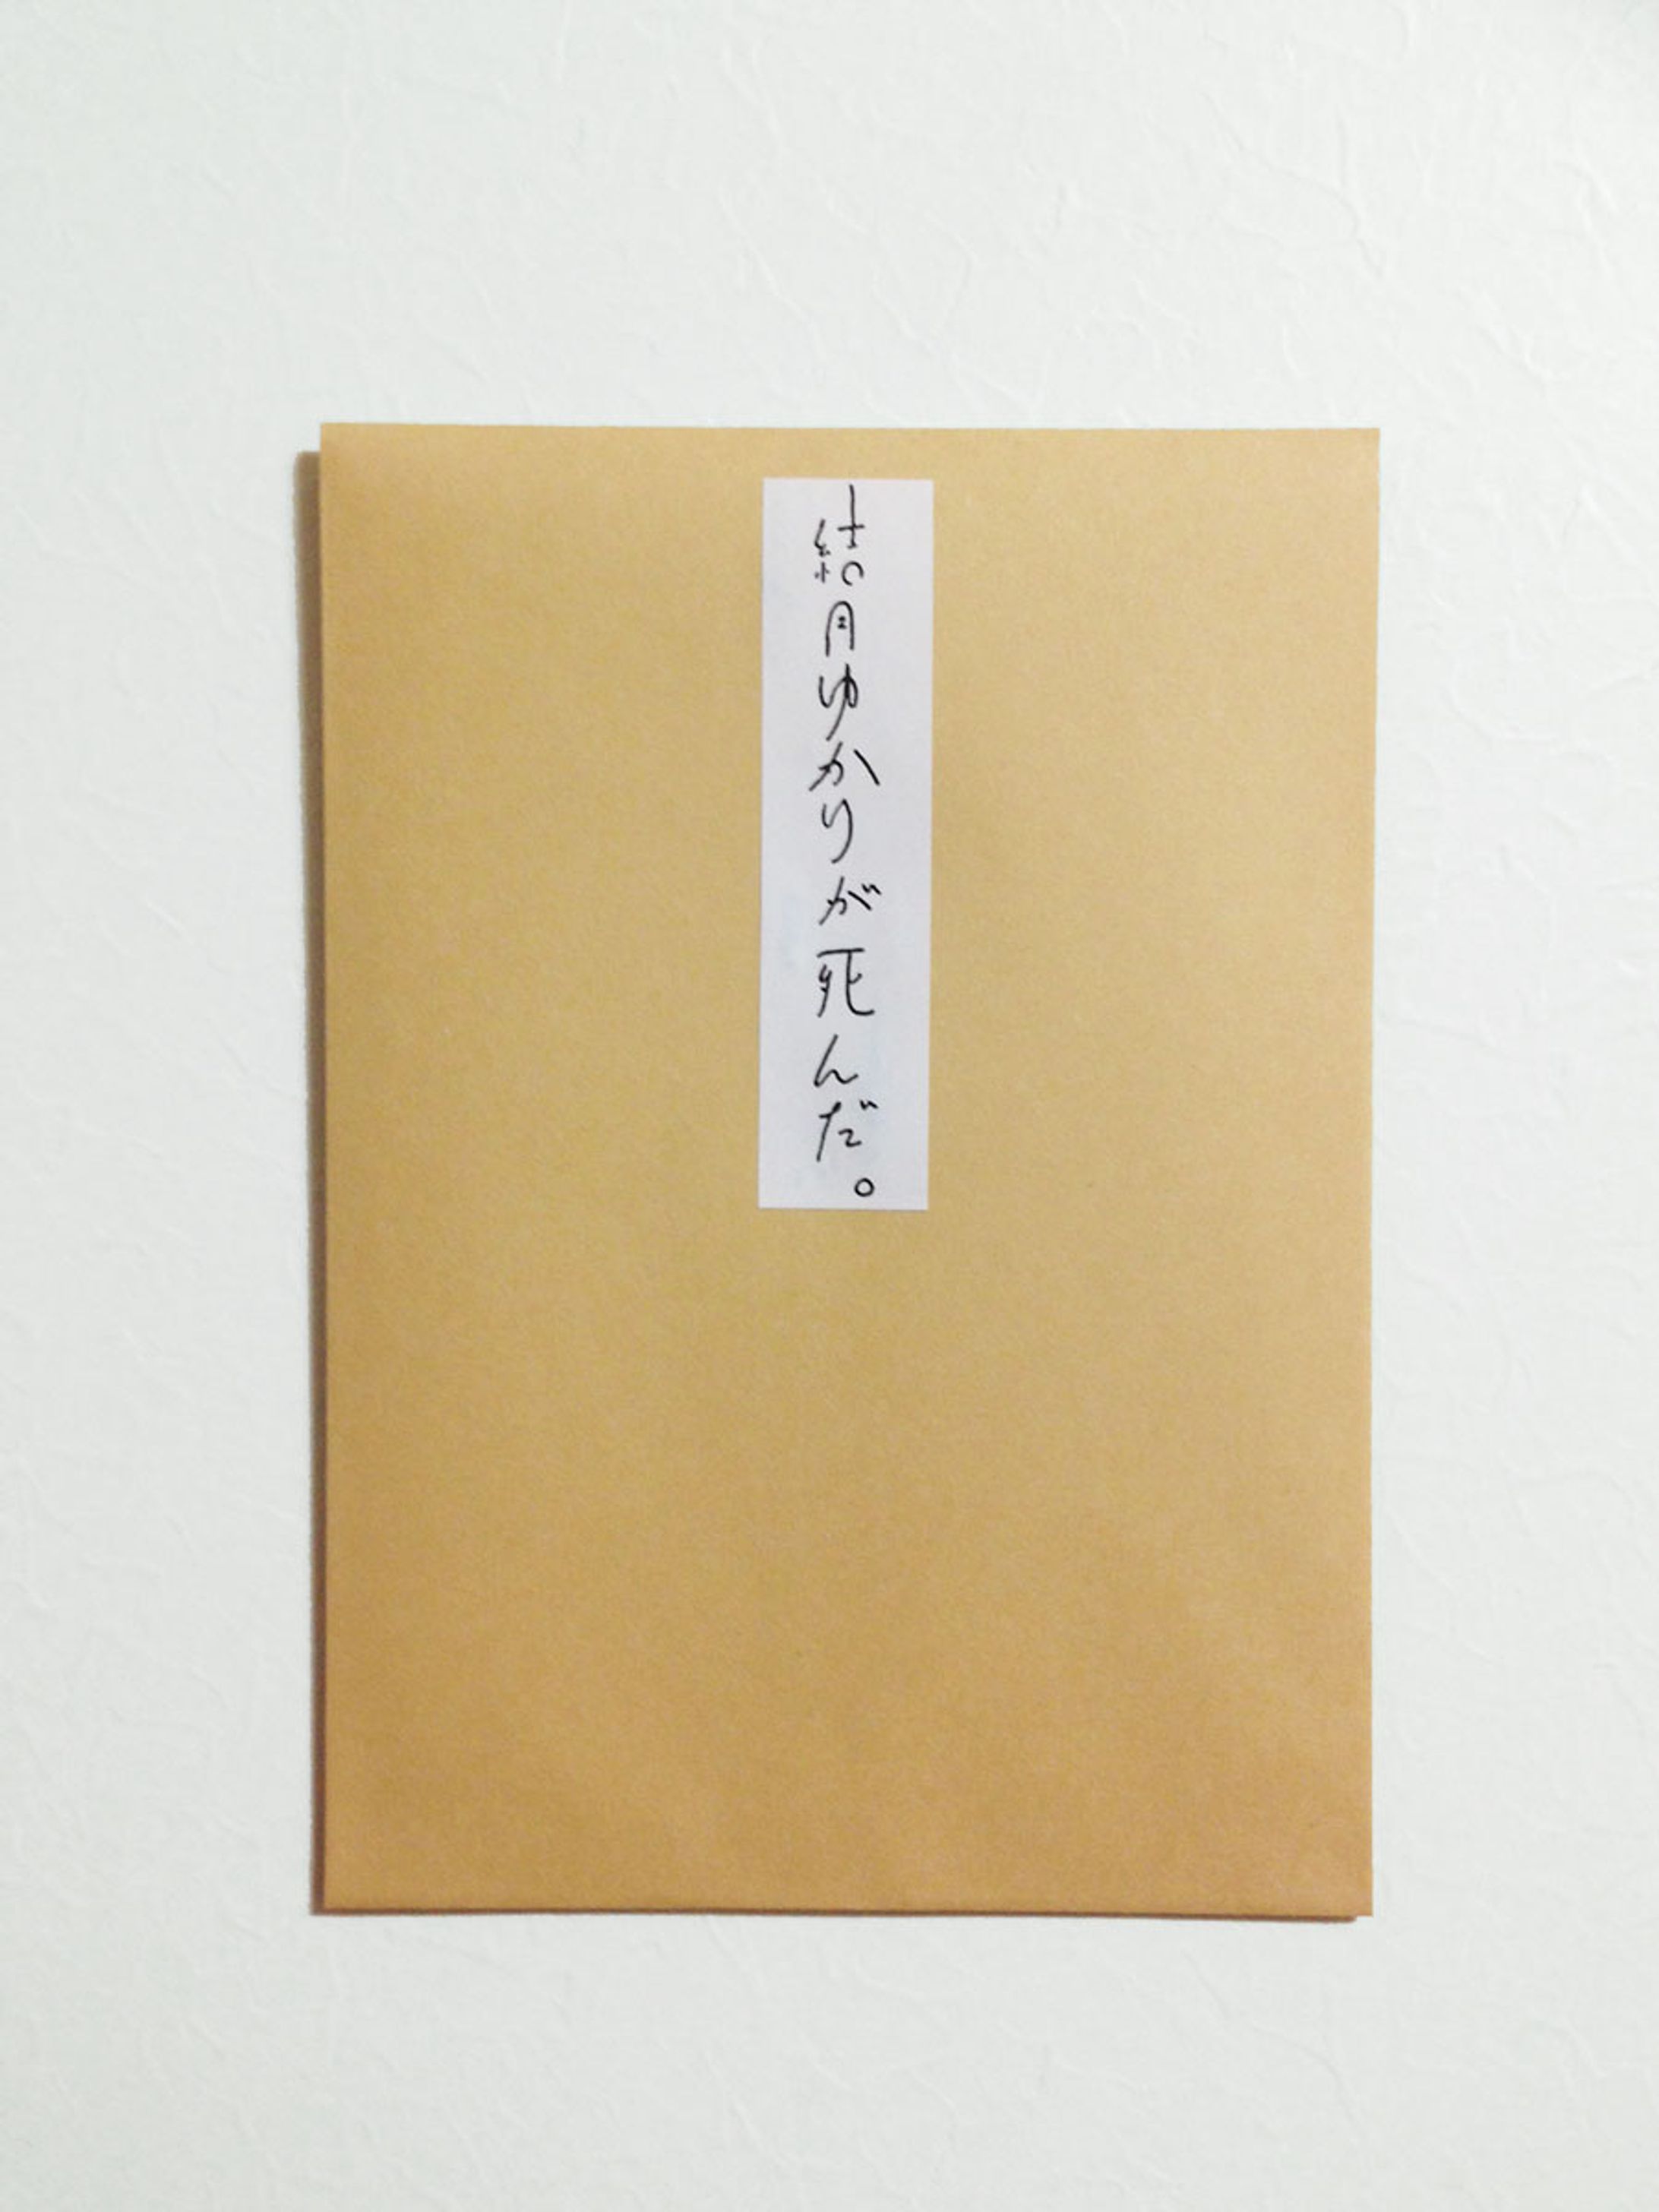 結月ゆかりが死んだ。